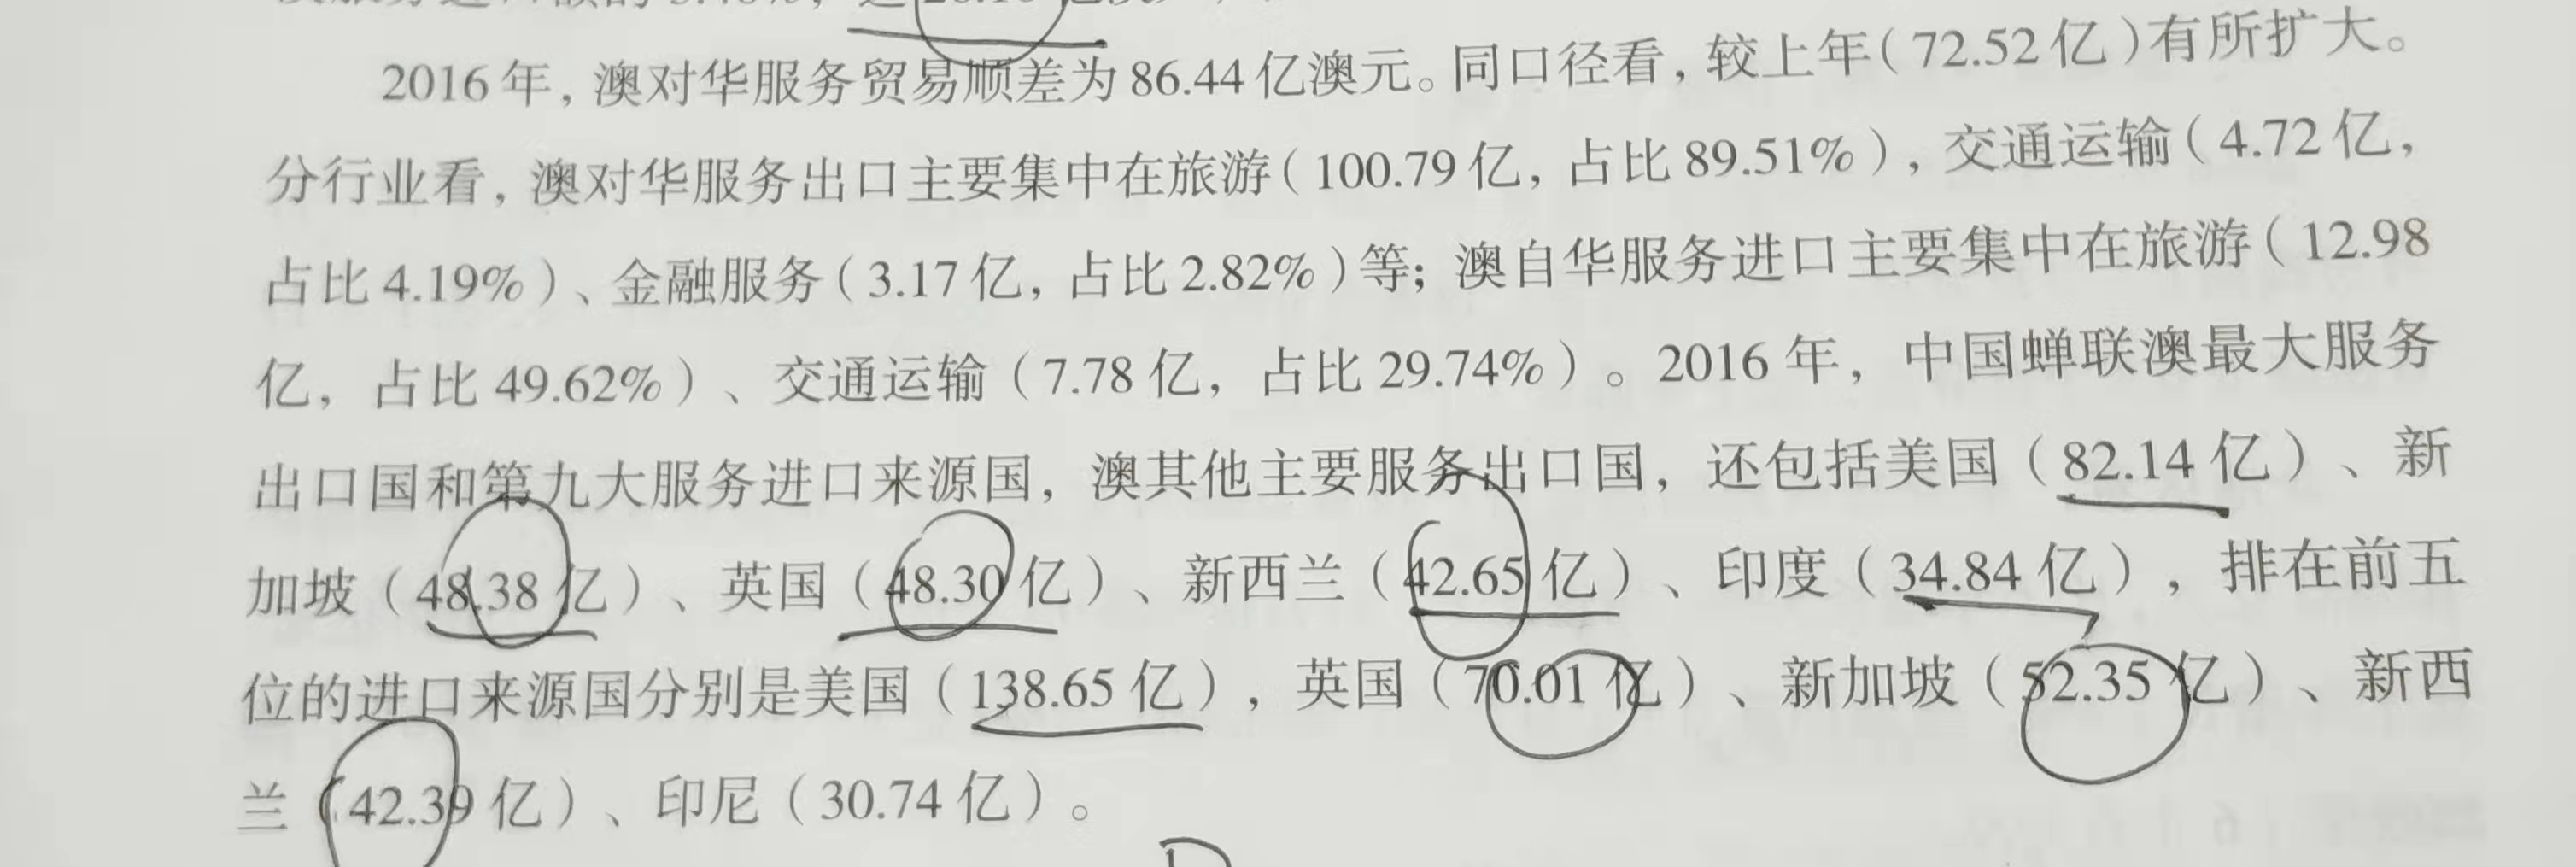 2016年，澳对华服务贸易顺差为86.44亿澳元。同口径看，较上年（72.52亿）有所扩大。
分行业看，澳对华服务出口主要集中在旅游（100.79亿，占比89.51%），交通运输（4.72亿，
占比4.19%）、金融服务（3.17亿，占比2.82%）等；澳自华服务进口主要集中在旅游（12.98
亿，占比49.62%）、交通运输（7.78亿，占比29.74%）。2016年，中国蝉联澳最大服务
出口国和第九大服务进口来源国，澳其他主要服务出口国，还包括美国（82.14亿）、新
加坡（48.38亿）、英国（48.30亿）、新西兰（42.65亿）、印度（34.84亿），排在前五
位的进口来源国分别是美国（138.65亿），英国（70.01亿）、新加坡（52.35亿）、新西
兰（42.39亿）、印尼（30.74亿）。